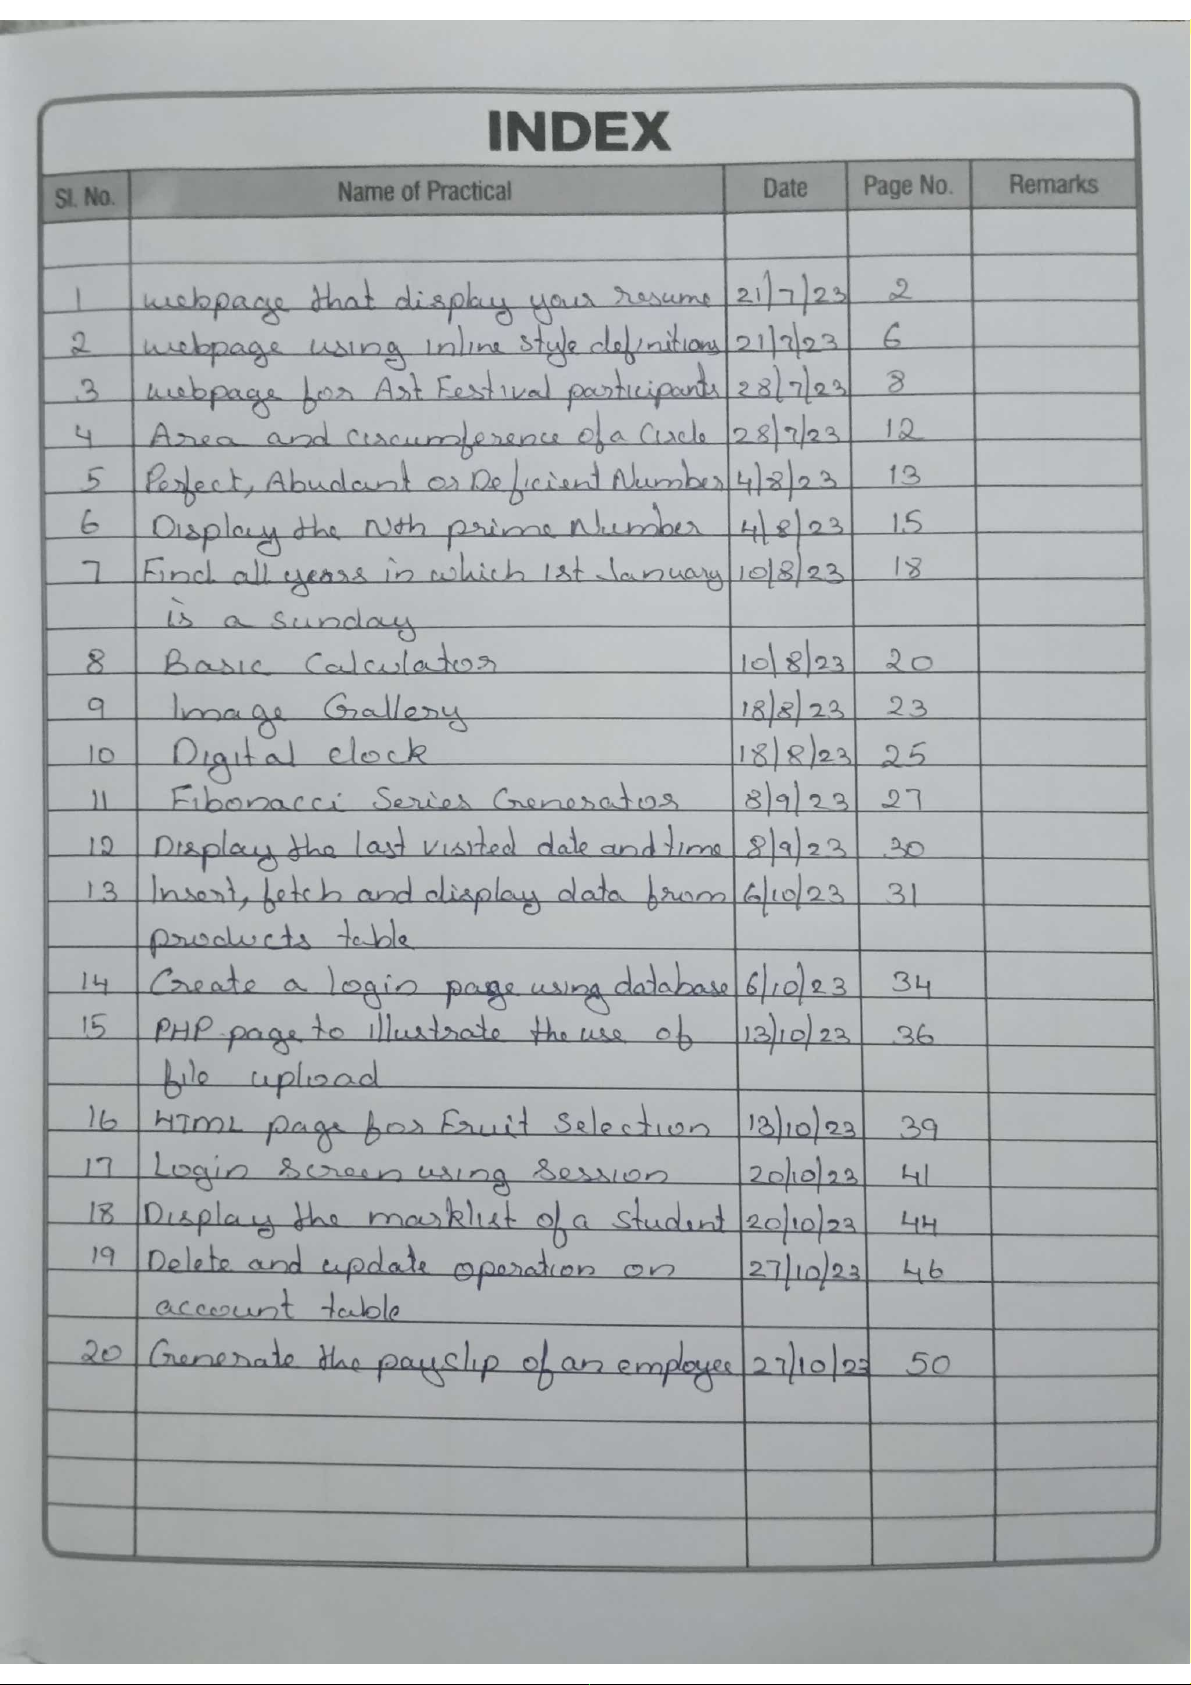 INDEX
Sl. No. Name of Practical Date Page No. Remarks
1 webpage that display your resume 21/7/23 2
2 webpage using inline style definitions 21/7/23 6
3 webpage for Art Festival participants 28/7/23 8
4 Area and circumference of a Circle 28/7/23 12
5 Perfect, Abudant or Deficient Number 4/8/23 13
6 Display the Nth prime Number 4/8/23 15
7 Find all years in which 1st January 10/8/23 18
is a sunday
8 Basic Calculator 10/8/23 20
9 Image Gallery 18/8/23 23
10 Digital clock 18/8/23 25
11 Fibonacci Series Generator 8/9/23 27
12 Display the last visited date and time 8/9/23 30
13 Insert, fetch and display data from 6/10/23 31
products table
14 Create a login page using database 6/10/23 34
15 PHP page to illustrate the use of 13/10/23 36
file upload
16 HTML page for Fruit Selection 13/10/23 39
17 Login screen using session 20/10/23 41
18 Display the marklist of a student 20/10/23 44
19 Delete and update operation on 27/10/23 46
account table
20 Generate the payslip of an employee 27/10/23 50